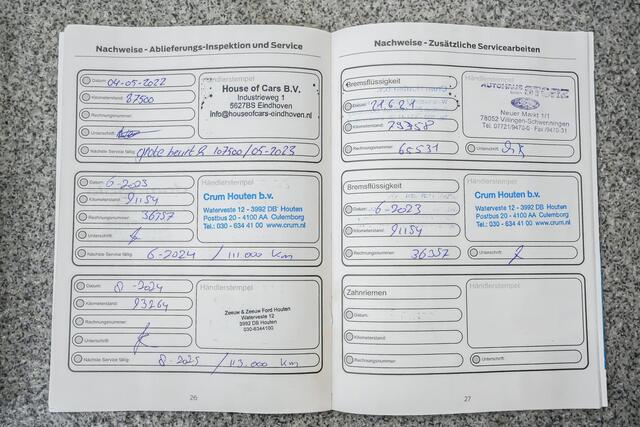 Nachweise - Ablieferungs-Inspektion und Service
Datum: 04-05-2022
Kilometerstand: 87500
Rechnungsnummer:
Unterschrift:
Nächste Service fällig: grote beurt 107500 / 05-2023
Händlerstempel
House of Cars B.V.
Industrieweg 1
5627BS Eindhoven
info@houseofcars-eindhoven.nl
Datum: 6-2023
Kilometerstand: 91154
Rechnungsnummer: 36357
Unterschrift:
Nächste Service fällig: 6-2024 / 111.000 km
Händlerstempel
Crum Houten b.v.
Waterveste 12 - 3992 DB Houten
Postbus 20 - 4100 AA Culemborg
Tel.: 030 - 634 41 00 www.crum.nl
Datum: 8-2024
Kilometerstand: 93264
Rechnungsnummer:
Unterschrift:
Nächste Service fällig: 8-2025 / 113.000 km
Händlerstempel
Zeeuw & Zeeuw Ford Houten
Waterveste 12
3992 DB Houten
030-6344100
26
Nachweise - Zusätzliche Servicearbeiten
Bremsflüssigkeit
Datum: 21.6.21
Kilometerstand: 79758
Rechnungsnummer: 65531
Händlerstempel
AUTOHAUS
Neuer Markt 1/1
78052 Villingen-Schwenningen
Tel. 07721/9470-0 · Fax /9470-31
Unterschrift:
Bremsflüssigkeit
Datum: 6-2023
Kilometerstand: 91154
Rechnungsnummer: 36357
Händlerstempel
Crum Houten b.v.
Waterveste 12 - 3992 DB Houten
Postbus 20 - 4100 AA Culemborg
Tel.: 030 - 634 41 00 www.crum.nl
Unterschrift:
Zahnriemen
Datum:
Kilometerstand:
Rechnungsnummer:
Händlerstempel
Unterschrift:
27